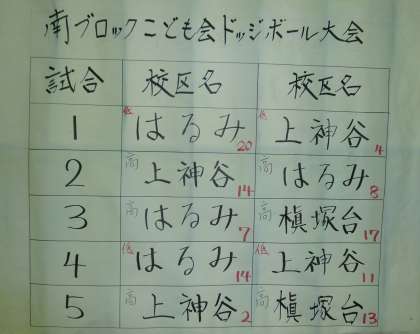 南ブロックこども会ドッジボール大会
試合 校区名 校区名
1 低 はるみ 20 低 上神谷 4
2 高 上神谷 14 高 はるみ 8
3 高 はるみ 7 高 槇塚台 17
4 低 はるみ 14 低 上神谷 11
5 高 上神谷 2 高 槇塚台 13